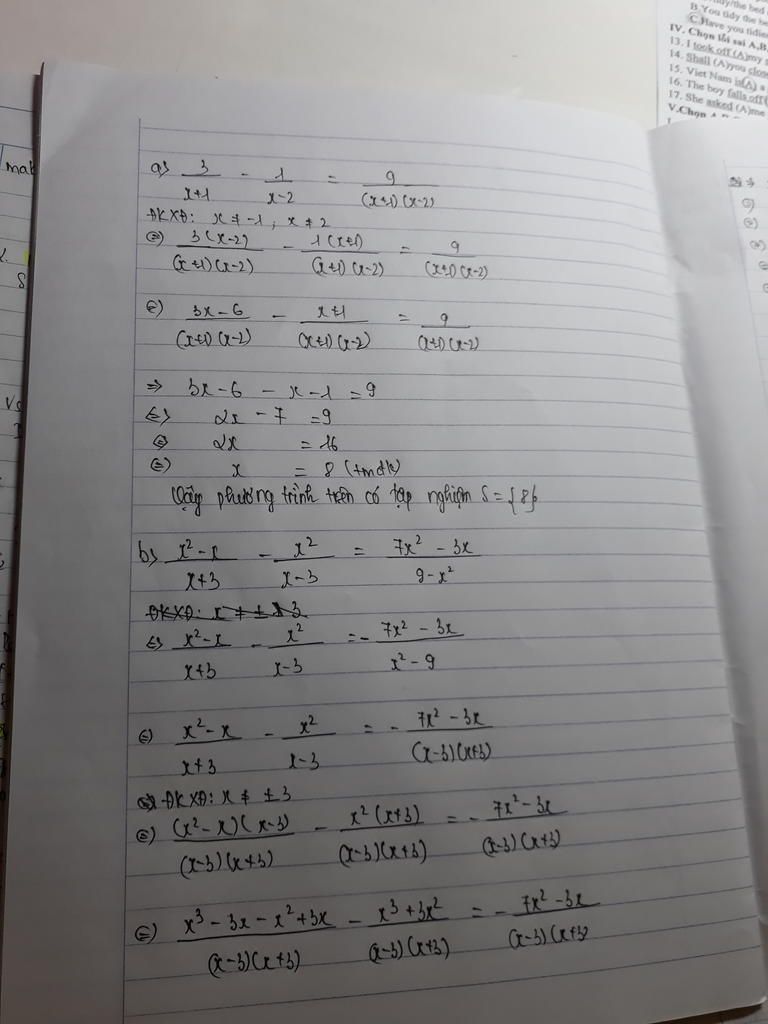 B. You tidy the be
C. Have you tidie
IV. Chọn lỗi sai A,B,
13. I took off (A)my
14. Shall (A)you close
15. Viet Nam is(A) a
16. The boy falls off(
17. She asked (A)me
a) 3/(x+1) - 1/(x-2) = 9/((x+1)(x-2))
ĐKXĐ: x ≠ -1, x ≠ 2
⇔ 3(x-2)/((x+1)(x-2)) - 1(x+1)/((x+1)(x-2)) = 9/((x+1)(x-2))
⇔ (3x-6)/((x+1)(x-2)) - (x+1)/((x+1)(x-2)) = 9/((x+1)(x-2))
⇒ 3x-6 - x-1 = 9
⇔ 2x - 7 = 9
⇔ 2x = 16
⇔ x = 8 (tmđk)
Vậy phương trình trên có tập nghiệm S = {8}
b) (x²-x)/(x+3) - x²/(x-3) = (7x² - 3x)/(9-x²)
ĐKXĐ: x ≠ ± 3
⇔ (x²-x)/(x+3) - x²/(x-3) = - (7x² - 3x)/(x² - 9)
⇔ (x²-x)/(x+3) - x²/(x-3) = - (7x² - 3x)/((x-3)(x+3))
ĐKXĐ: x ≠ ±3
⇔ (x²-x)(x-3)/((x-3)(x+3)) - x²(x+3)/((x-3)(x+3)) = - (7x²-3x)/((x-3)(x+3))
⇔ (x³ - 3x - x² + 3x)/((x-3)(x+3)) - (x³ + 3x²)/((x-3)(x+3)) = - (7x² - 3x)/((x-3)(x+3))